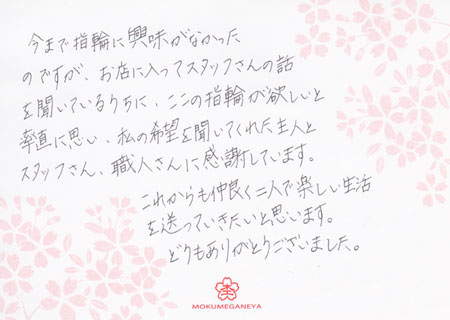 今まで指輪に興味がなかった
のですが、お店に入ってスタッフさんの話
を聞いているうちに、ここの指輪が欲しいと
率直に思い、私の希望を聞いてくれた主人と
スタッフさん、職人さんに感謝しています。
これからも仲良く二人で楽しい生活
を送っていきたいと思います。
どうもありがとうございました。
MOKUMEGANEYA